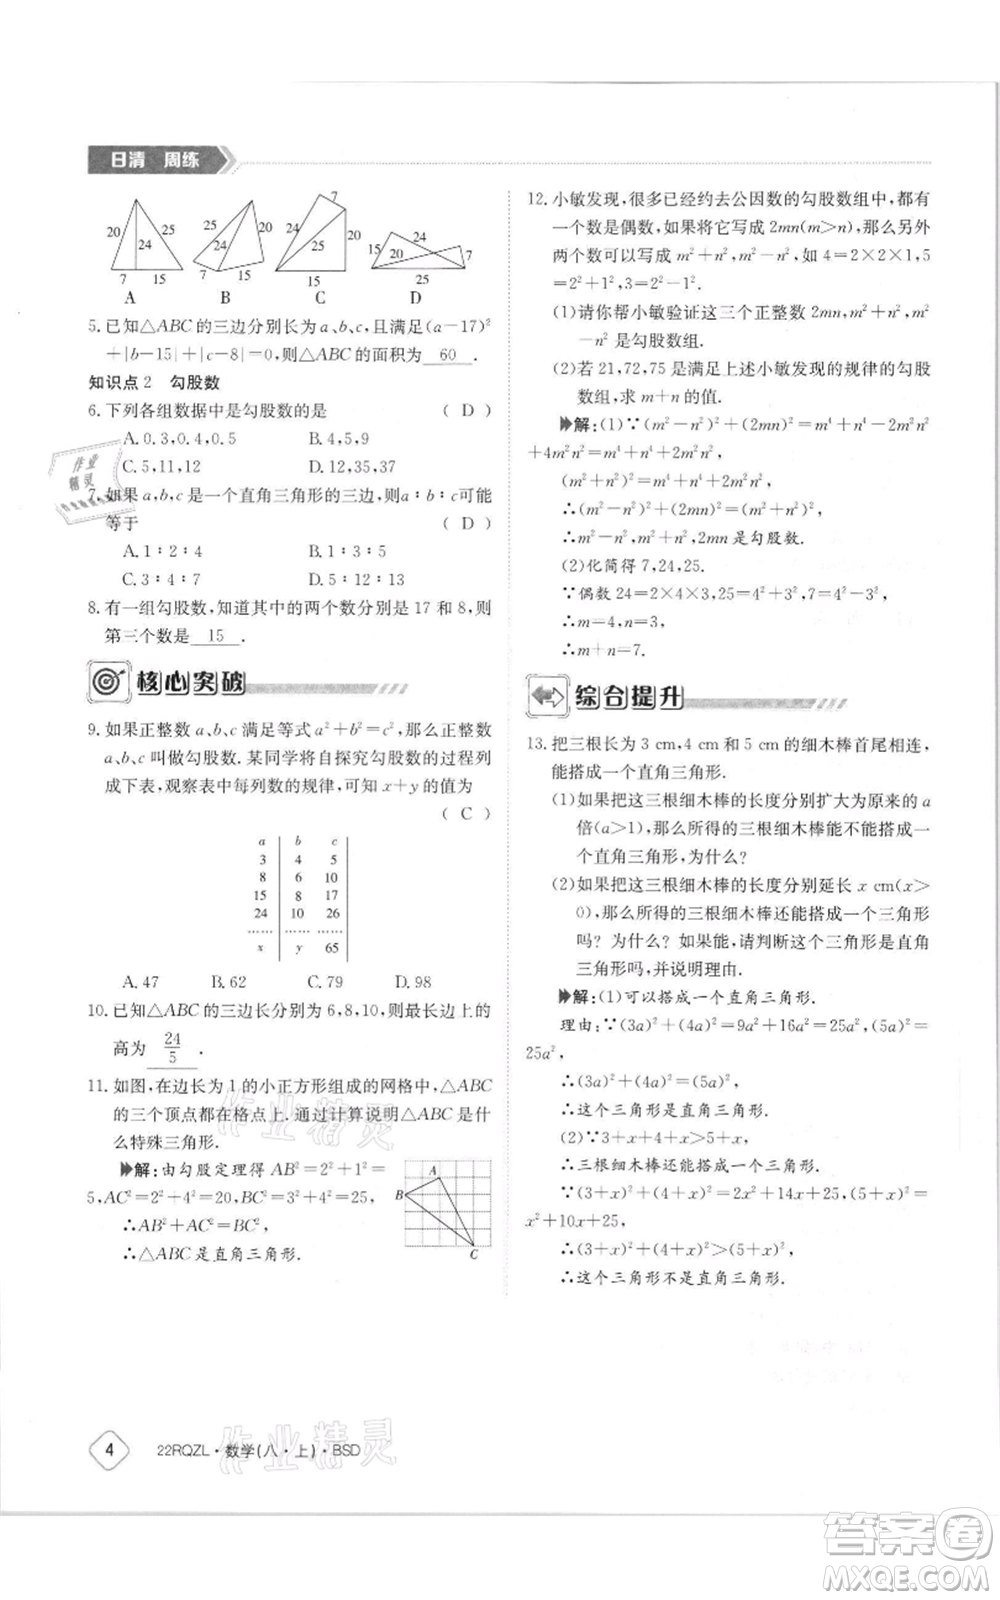 日清 周练
20 25 24 7 15
20 24 25 15 7
7 24 20 25 15
15 24 20 7 25
A B C D
5.已知△ABC的三边分别长为a,b,c,且满足(a-17)²
+|b-15|+|c-8|=0,则△ABC的面积为 60 .
知识点2 勾股数
6.下列各组数据中是勾股数的是 ( D )
A.0.3,0.4,0.5 B.4,5,9
C.5,11,12 D.12,35,37
7.如果a,b,c是一个直角三角形的三边,则a∶b∶c可能
等于 ( D )
A.1∶2∶4 B.1∶3∶5
C.3∶4∶7 D.5∶12∶13
8.有一组勾股数,知道其中的两个数分别是17和8,则
第三个数是 15 .
核心突破
9.如果正整数a,b,c满足等式a²+b²=c²,那么正整数
a,b,c叫做勾股数.某同学将自探究勾股数的过程列
成下表,观察表中每列数的规律,可知x+y的值为
( C )
a b c
3 4 5
8 6 10
15 8 17
24 10 26
…… …… ……
x y 65
A.47 B.62 C.79 D.98
10.已知△ABC的三边长分别为6,8,10,则最长边上的
高为 24/5 .
11.如图,在边长为1的小正方形组成的网格中,△ABC
的三个顶点都在格点上.通过计算说明△ABC是什
么特殊三角形.
解:由勾股定理得AB²=2²+1²=
5,AC²=2²+4²=20,BC²=3²+4²=25,
∴AB²+AC²=BC²,
∴△ABC是直角三角形.
A
B
C
12.小敏发现,很多已经约去公因数的勾股数组中,都有
一个数是偶数,如果将它写成2mn(m>n),那么另外
两个数可以写成m²+n²,m²-n²,如4=2×2×1,5
=2²+1²,3=2²-1².
(1)请你帮小敏验证这三个正整数2mn,m²+n²,m²
-n²是勾股数组.
(2)若21,72,75是满足上述小敏发现的规律的勾股
数组,求m+n的值.
解:(1)∵(m²-n²)²+(2mn)²=m⁴+n⁴-2m²n²
+4m²n²=m⁴+n⁴+2m²n²,
(m²+n²)²=m⁴+n⁴+2m²n²,
∴(m²-n²)²+(2mn)²=(m²+n²)²,
∴m²-n²,m²+n²,2mn是勾股数.
(2)化简得7,24,25.
∵偶数24=2×4×3=2mn,
∴m=4,n=3,
∴m+n=7.
综合提升
13.把三根长为3 cm,4 cm和5 cm的细木棒首尾相连,
能搭成一个直角三角形.
(1)如果把这三根细木棒的长度分别扩大为原来的a
倍(a>1),那么所得的三根细木棒能不能搭成一
个直角三角形,为什么?
(2)如果把这三根细木棒的长度分别延长x cm(x>
0),那么所得的三根细木棒还能搭成一个三角形
吗?为什么?如果能,请判断这个三角形是直角
三角形吗,并说明理由.
解:(1)可以搭成一个直角三角形.
理由:∵(3a)²+(4a)²=9a²+16a²=25a²,(5a)²=
25a²,
∴(3a)²+(4a)²=(5a)²,
∴这个三角形是直角三角形.
(2)∵3+x+4+x>5+x,
∴三根细木棒还能搭成一个三角形.
∵(3+x)²+(4+x)²=2x²+14x+25,(5+x)²=
x²+10x+25,
∴(3+x)²+(4+x)²>(5+x)²,
∴这个三角形不是直角三角形.
4 22RQZL·数学(八·上)·BSD
作业精灵
作业精灵
作业精灵
答案卷
MXQE.COM